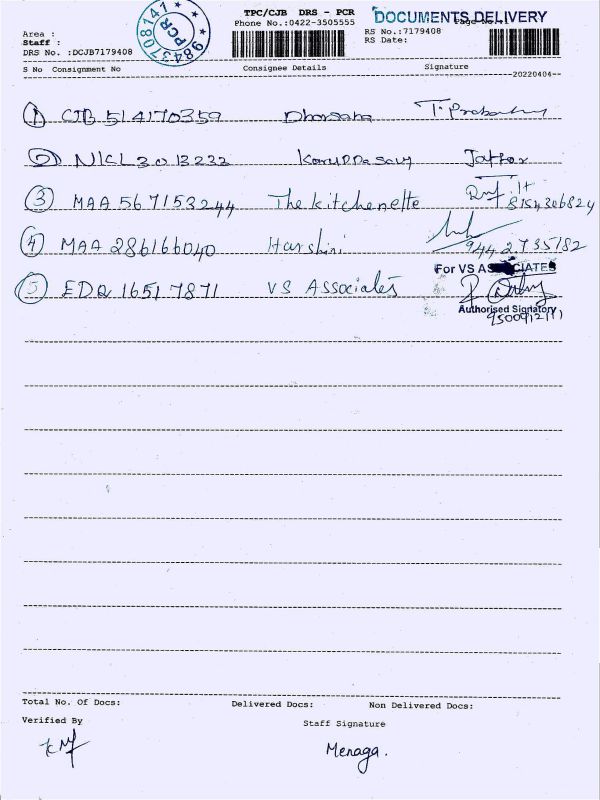 TPC/CJB DRS - PCR
DOCUMENTS DELIVERY
Phone No.:0422-3505555
Area :
Staff :
RS No.:7179408
RS Date:
DRS No. :DCJB7179408
984 3708141
PCR
S No Consignment No Consignee Details Signature
20220404
1 CJB 514170359
2 NICL 3013232 Karuppasamy Jaffar
3 MAA 567153244 The kitchenette
4 MAA 286166040 Harshini
For VS ASSOCIATES
5 EDQ 16517871 VS Associates
Authorised Signatory
Total No. Of Docs: Delivered Docs: Non Delivered Docs:
Verified By Staff Signature
Menaga.